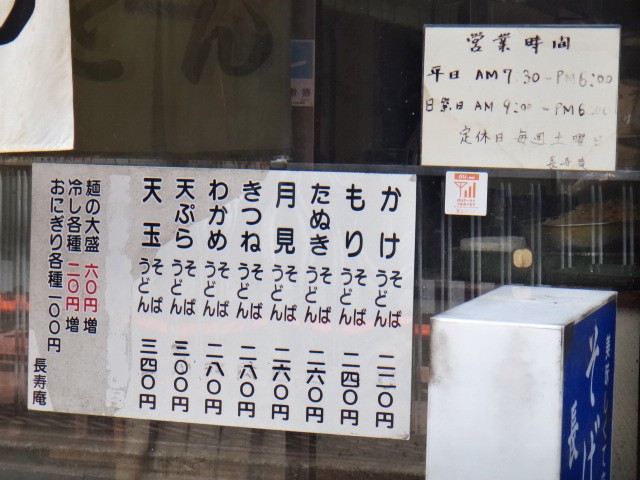 営業時間
平日 AM7:30-PM6:00
日祭日 AM 9:00-PM6:00
定休日 毎週土曜日
長寿庵
かけ そば うどん 二二〇円
もり そば うどん 二四〇円
たぬき そば うどん 二六〇円
月見 そば うどん 二六〇円
きつね そば うどん 二八〇円
わかめ そば うどん 二八〇円
天ぷら そば うどん 三〇〇円
天玉 そば うどん 三四〇円
麺の大盛 六〇円増
冷し各種 二〇円増
おにぎり各種 一〇〇円
長寿庵
そば
長